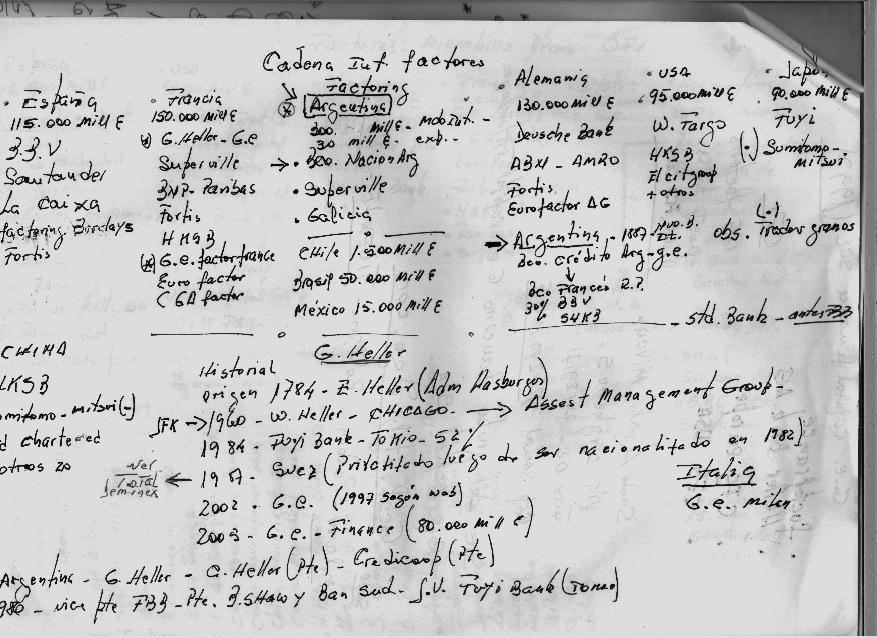 Cadena Int. factores
• España
115.000 mill €
B.B.V
Santander
La Caixa
factoring Barclays
Fortis
• Francia
150.000 mill €
(x) G. Heller - G.e
Superville
BNP. Paribas
Fortis
HKSB
(x) G.e. factorfrance
Euro factor
CGA factor
Factoring
(x) Argentina
300. mill € -
30 mill €. exp. --
→ • Bco. Nacion Arg
• Superville
• Galicia
CHile 1.500 Mill €
Brasil 50.000 mill €
México 15.000 mill €
• Alemania
130.000 mill €
Deusche Bank
ABN - AMRO
Fortis
Eurofactor AG
• USA
95.000 mill €
W. Fargo
HKSB
El citgroup
+ otros
• Japón
90.000 mill €
Fuyi
(•) Sumitomo -
mitsui
(•)
→ Argentina - 1887 - obs. Trader granos
Bco. crédito Arg - g.e.
↓
Bco Francés R.P.
30% BBV
- std. Bank - anter BB
CHINA
HKSB
omitomo - mitsui (-)
d chartered
otros 20
G. Heller
Historial
origen 1784 - E. Heller (Adm Hasburgos)
JFK → 1960 - W. Heller - CHICAGO - → Assest Management Group -
1984 - Fuyi Bank - Tokio - 52 %
ver
TOTAL
← 1987 - Suez (Privatizado luego de ser nacionalizado en 1982)
2002 - G.e. (1997 según web)
2003 - G.e. - Finance (80.000 mill €)
Italia
G.e. milan
Argentina - G. Heller - G. Heller (Pte) - Credicoop (Pte)
980 - vice pte FBB - Pte. B. SHaw y Ban sud - Fuyi Bank